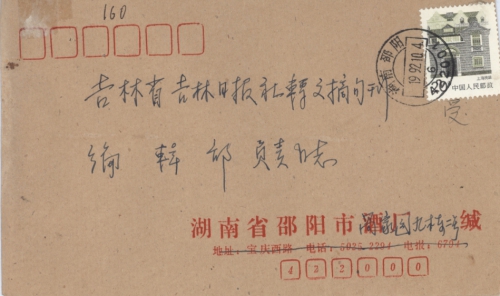 160
吉林省吉林日报社轉文摘旬刊
编辑部负责同志
湖南 邵阳
1992.10.4
上海民居
中国人民邮政
湖南省邵阳市 缄
地址:宝庆西路 电话: 电报:
422000